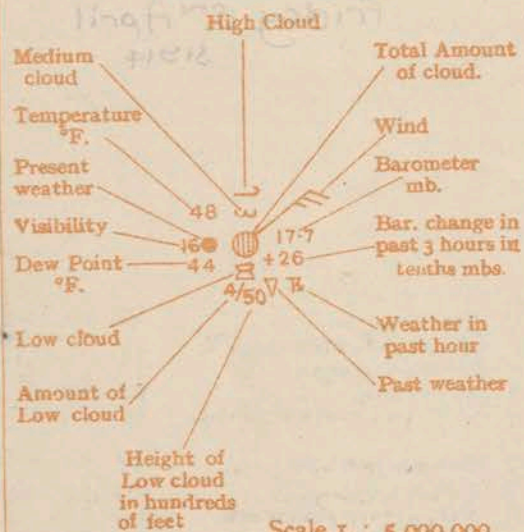 High Cloud
Medium
cloud
Total Amount
of cloud.
Temperature
°F.
Wind
Present
weather
Barometer
mb.
Visibility
48
16
17·7
Bar. change in
past 3 hours in
tenths mbs.
Dew Point
°F.
44
+26
4/50
Low cloud
Weather in
past hour
Amount of
Low cloud
Past weather
Height of
Low cloud
in hundreds
of feet
Scale 1 : 5,000,000